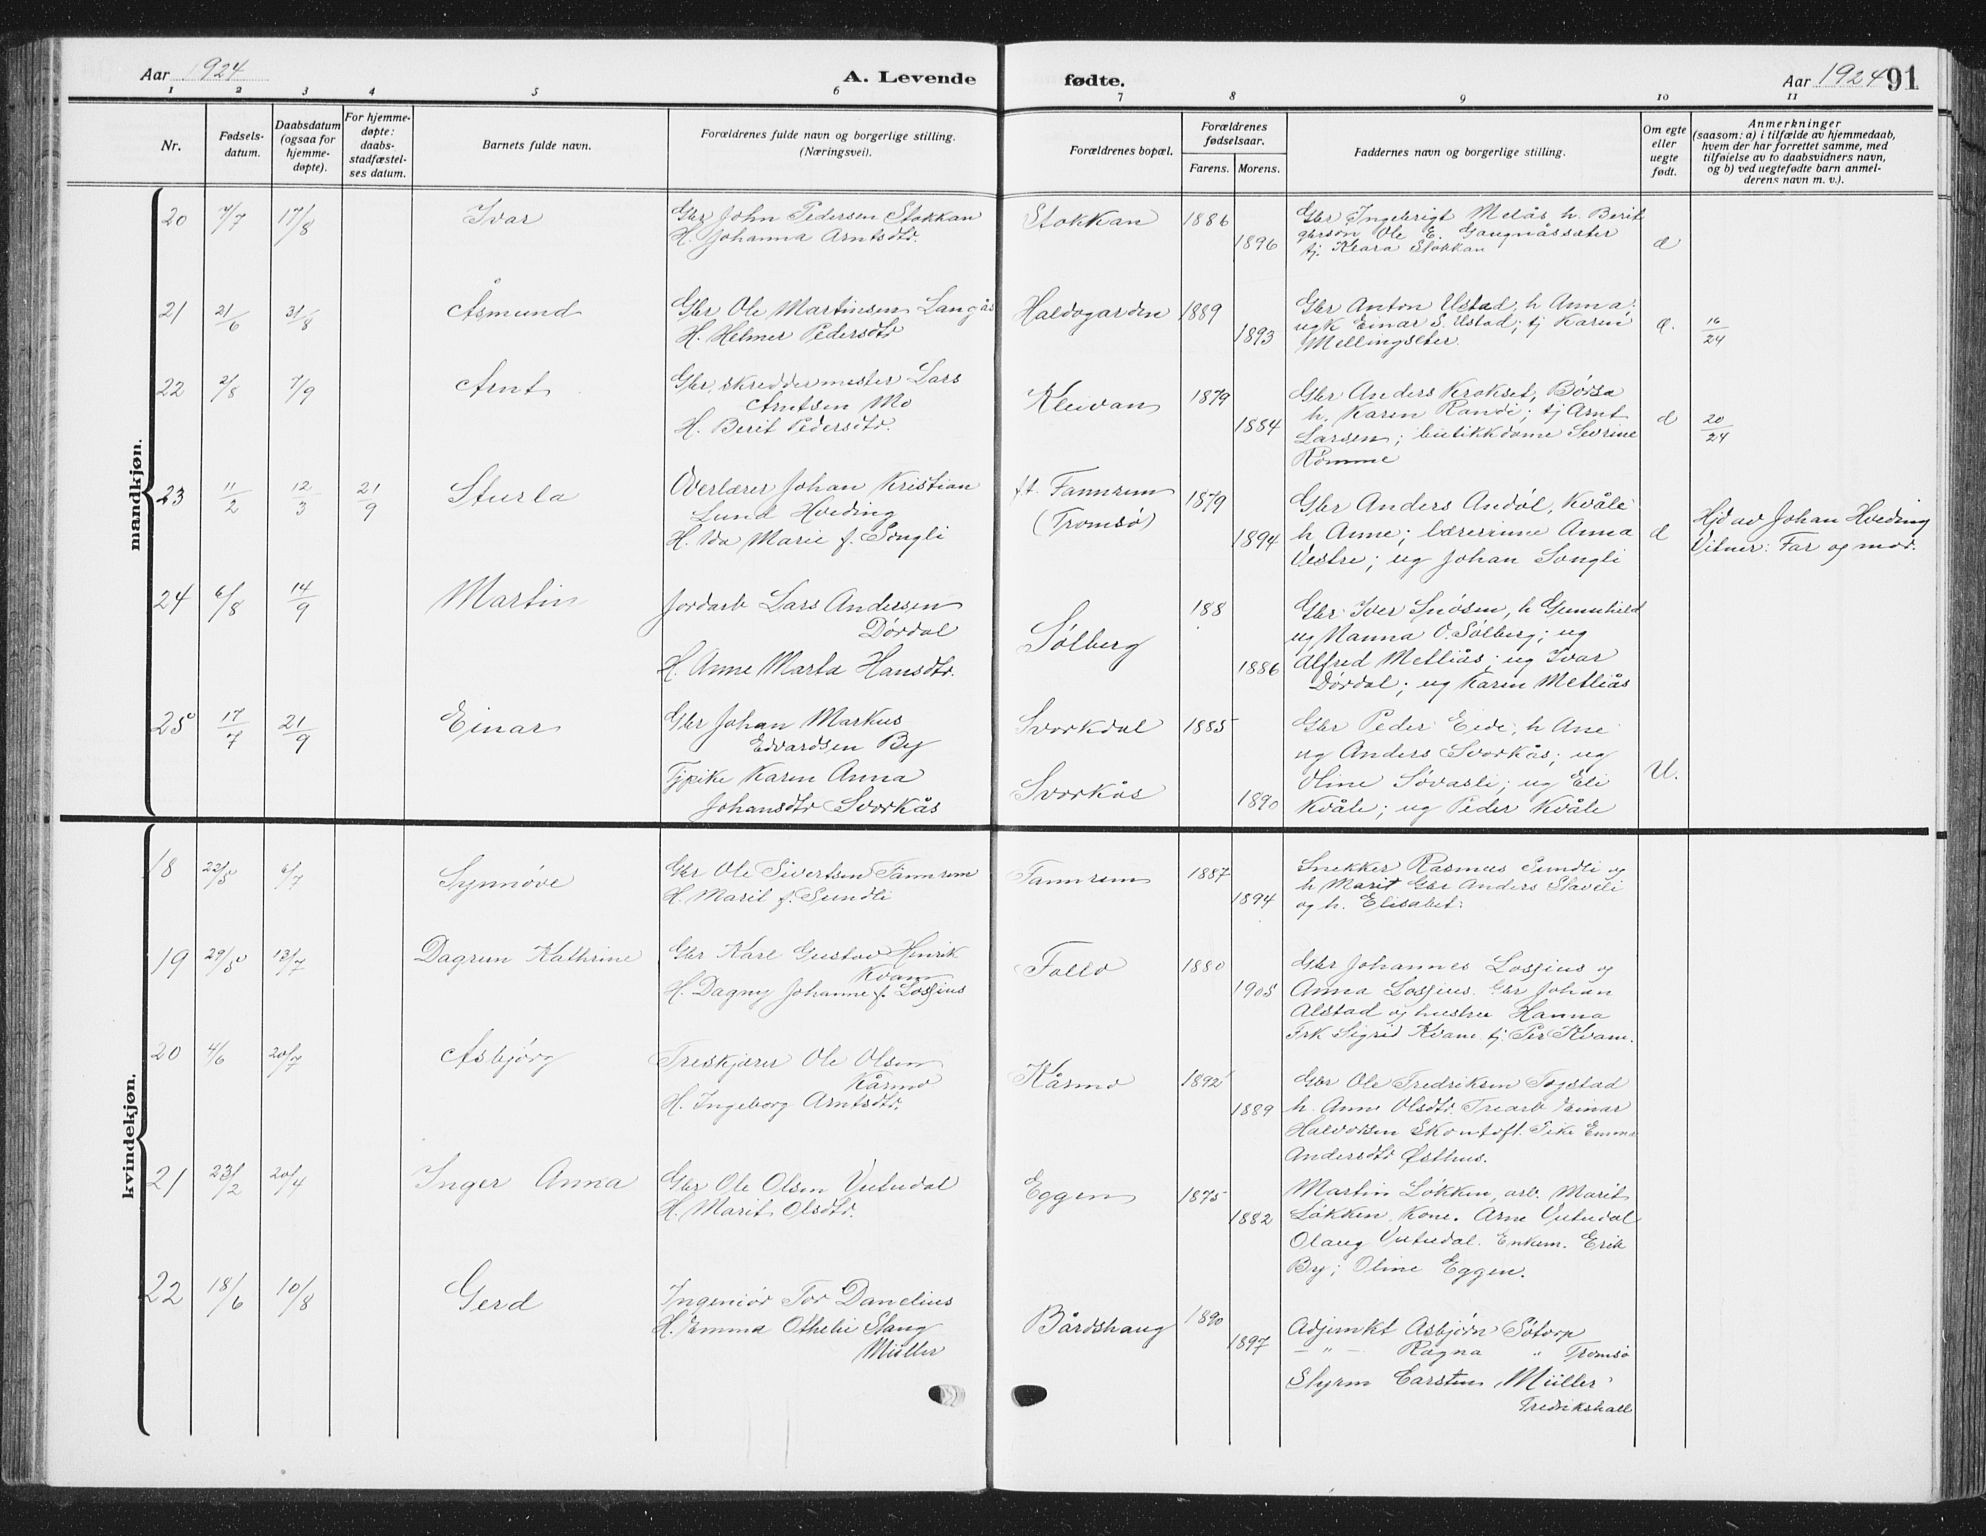 Aar 1924
A. Levende
fødte.
Aar 1924
91
1 2 3 4 5 6 7 8 9 10 11
Nr.
Fødsels-
datum.
Daabsdatum
(ogsaa for
hjemme-
døpte).
For hjemme-
døpte:
daabs-
stadfæstel-
ses datum.
Barnets fulde navn.
Forældrenes fulde navn og borgerlige stilling.
(Næringsvei).
Forældrenes bopæl.
Forældrenes
fødselsaar.
Farens. Morens.
Faddernes navn og borgerlige stilling.
Om egte
eller
uegte
født.
Anmerkninger
(saasom: a) i tilfælde av hjemmedaab,
hvem der har forrettet samme, med
tilføielse av to daabsvidners navn,
og b) ved uegtefødte barn anmel-
derens navn m. v.).
mandkjøn.
20 7/7 17/8 Ivar
Gbr John Pedersen Stokkan
H. Johanna Arntsdtr.
Stokkan 1886
1896
Gbr Ingebrigt Melås h. Berit
gårson Ole E. Gaugnåssæter
tj. Klara Stokkan
d
21 21/6 31/8 Åsmund
Gbr Ole Martinsen Langås
H. Helmer Pedersdtr
Haldogarden 1889
1893
Gbr Anton Ustad, h Anna;
ugk Einar S. Ustad; tj Karen
Mellingseter.
d. 16/24
22 2/8 7/9 Arnt
Gbr, skreddermester Lars
Arntsen Mo
H. Berit Pedersdtr.
Kleivan 1879
1884
Gbr Anders Krokset, Børsa
h. Karen Randi; tj Arnt
Larsen; butikkdame Sevrine
Rømme
d 20/24
23 11/2 12/3 21/9 Sturla
Overlærer Johan Kristian
Lund Hveding
H. Ida Marie f. Songli
f.t. Fannrem
(Tromsø)
1879
1894
Gbr Anders Andøl, Kvåle
h Anne; lærerinne Anna
Vestre; ug Johan Songli
d
Hjd av Johan Hveding
Vitner: Far og mor.
24 6/8 14/9 Martin
Jordarb Lars Andersen
Dørdal
H. Anne Marta Hansdtr.
Sølberg
188
1886
Gbr Iver Snøsen, h Gunnhild
ug Nanna O. Sølberg; ug
Alfred Metliås; ug Ivar
Dørdal; ug Karen Metliås
25 17/7 21/9 Einar
Gbr Johan Markus
Edvardsen By
Tjpike Karen Anna
Johansdtr Svorkås
Svorkdal
Svorkås
1885
1890
Gbr Peder Eide, h Ane
ug Anders Svorkås; ug
Oline Søvasli; ug Eli
Kvåle; ug Peder Kvåle
U.
kvindekjøn.
18 22/5 6/7 Synnøve
Gbr Ole Sivertsen Fannrem
H. Marit f. Sundli
Fannrem 1887
1894
Snekker Rasmus Sundli og
h Marit Gbr Anders Slavili
og h. Elisabet.
19 29/5 13/7 Dagrun Kathrine
Gbr Karl Gustav Henrik
Kvam
H. Dagny Johanne f. Losjius
Follo 1880
1905
Gbr Johannes Losjius og
Anna Losjius. Gbr Johan
Alstad og hustru Hanna
Frk Sigrid Kvam tj. Per Kvam.
20 4/6 20/7 Asbjørg
Treskjærer Ole Olsen
Kårmo
H. Ingeborg Arntsdtr.
Kårmo 1892
1889
Gbr Ole Fredriksen Togstad
h. Anne Olsdtr. Trearb Einar
Halvorsen Skomtoft. Pike Emma
Andersdtr Østhus.
21 23/2 20/4 Inger Anna
Gbr Ole Olsen Vutudal
H. Marit Olsdtr.
Eggen 1875
1882
Martin Løkken, arb. Marit
Løkken, Kone. Arne Vutudal
Olaug Vutudal. Enkem. Erik
By; Oline Eggen.
22 18/6 10/8 Gerd
Ingeniør Tor Danelius
H. Emma Othelie Stang
Müller
Bårdshaug 1890
1897
Adjunkt Asbjørn Søtorp
— " — Ragna " Tromsø
Styrm Carsten Müller
Fredrikshall